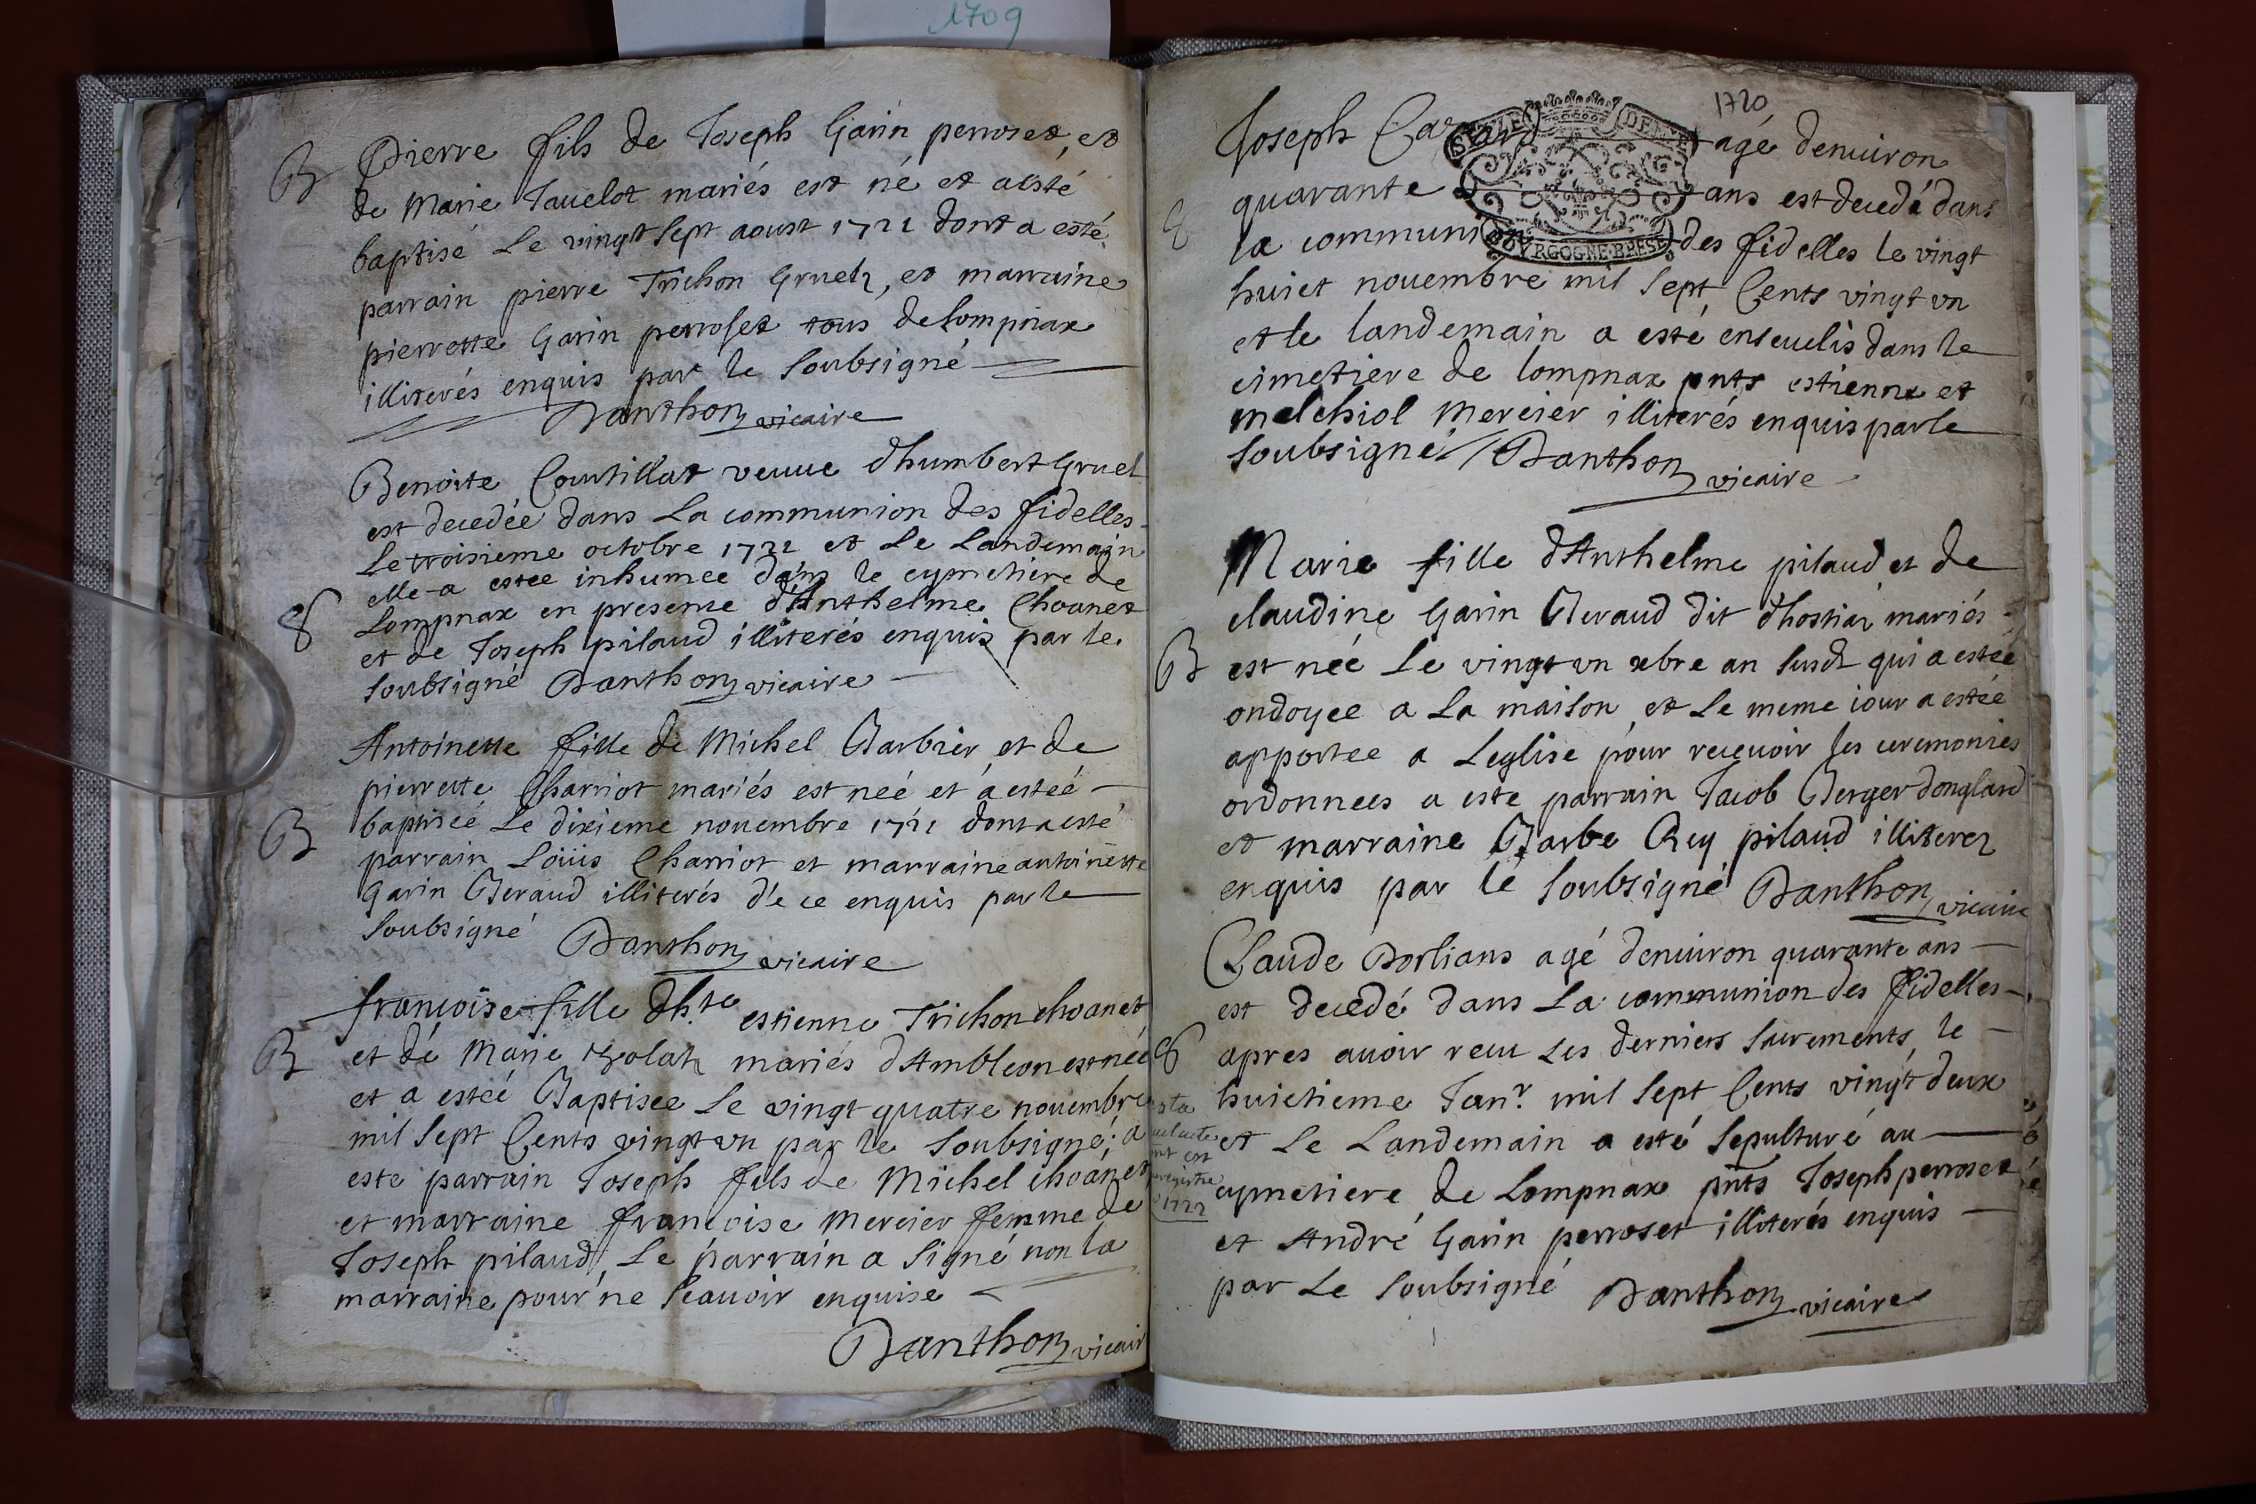 1709
B Pierre fils de Joseph Garin perroset, et
de Marie Tauelot mariés est né et a esté
baptisé Le vingt sept aoust 1721 dont a esté
parrain pierre Trichon Gruel, et marraine
pierrette Garin perroset tous de Lompnax
illiterés enquis par le soubsigné
Danthon vicaire
Benoite Courtillat veuue d'humbert Gruel
est decedée dans La communion des fidelles
Le troisieme octobre 1721 et Le Landemain
elle a estee inhumee dans le cymetiere de
8 Lompnax en presence d'Anthelme Choanet
et de Joseph pilaud illiterés enquis par le
soubsigné Danthon vicaire
Antoinette fille de Michel Barbier et de
pierrette Charriot mariés est née et a esteé
B baptiseé Le dixieme nouembre 1721 dont a esté
parrain Loüis Charriot et marraine antoinette
Garin Beraud illiterés de ce enquis par le
soubsigné Danthon vicaire
françoise fille d'h.te estienne Trichon choanet
B et de Marie mariés d'Ambleon est née
et a esteé Baptisee Le vingt quatre nouembre
mil sept Cents vingt un par le soubsigné; a
esté parrain Joseph fils de Michel choanet
et marraine françoise Mercier femme de
Joseph pilaud, Le parrain a signé non la
marraine pour ne scauoir enquise
Danthon vicair
1720
SEIZE DENIERS
BOVRGOGNE·BRESSE
Joseph agé denuiron
quarante ans est decedé dans
8 la communion des fidelles le vingt
huict nouembre mil sept Cents vingt un
et le landemain a esté enseuelis dans le
cimetiere de lompnax pnts estienne et
melchiol Mercier illiterés enquis par le
soubsigné Danthon vicaire
Marie fille d'Anthelme pilaud et de
claudine Garin Beraud dit d'hostiaz mariés
B est neé Le vingt un xbre an susd qui a esteé
ondoyee a La maison et Le meme iour a esteé
apportee a Leglise pour receuoir les ceremonies
ordonnees a esté parrain Jacob Berger donglard
et marraine Barbe Rey pilaud illiterez
enquis par le soubsigné Danthon vicaire
Claude Dorlians agé denuiron quarante ans
est decedé dans La communion des fidelles
8 apres auoir receu Les derniers sacrements le
huictieme Janr. mil sept Cents vingt deux
et Le Landemain a esté sepulturé au
cymetiere de Lompnax pnts Joseph perroset
et André Garin perroset illiterés enquis
par Le soubsigné Danthon vicaire
1722